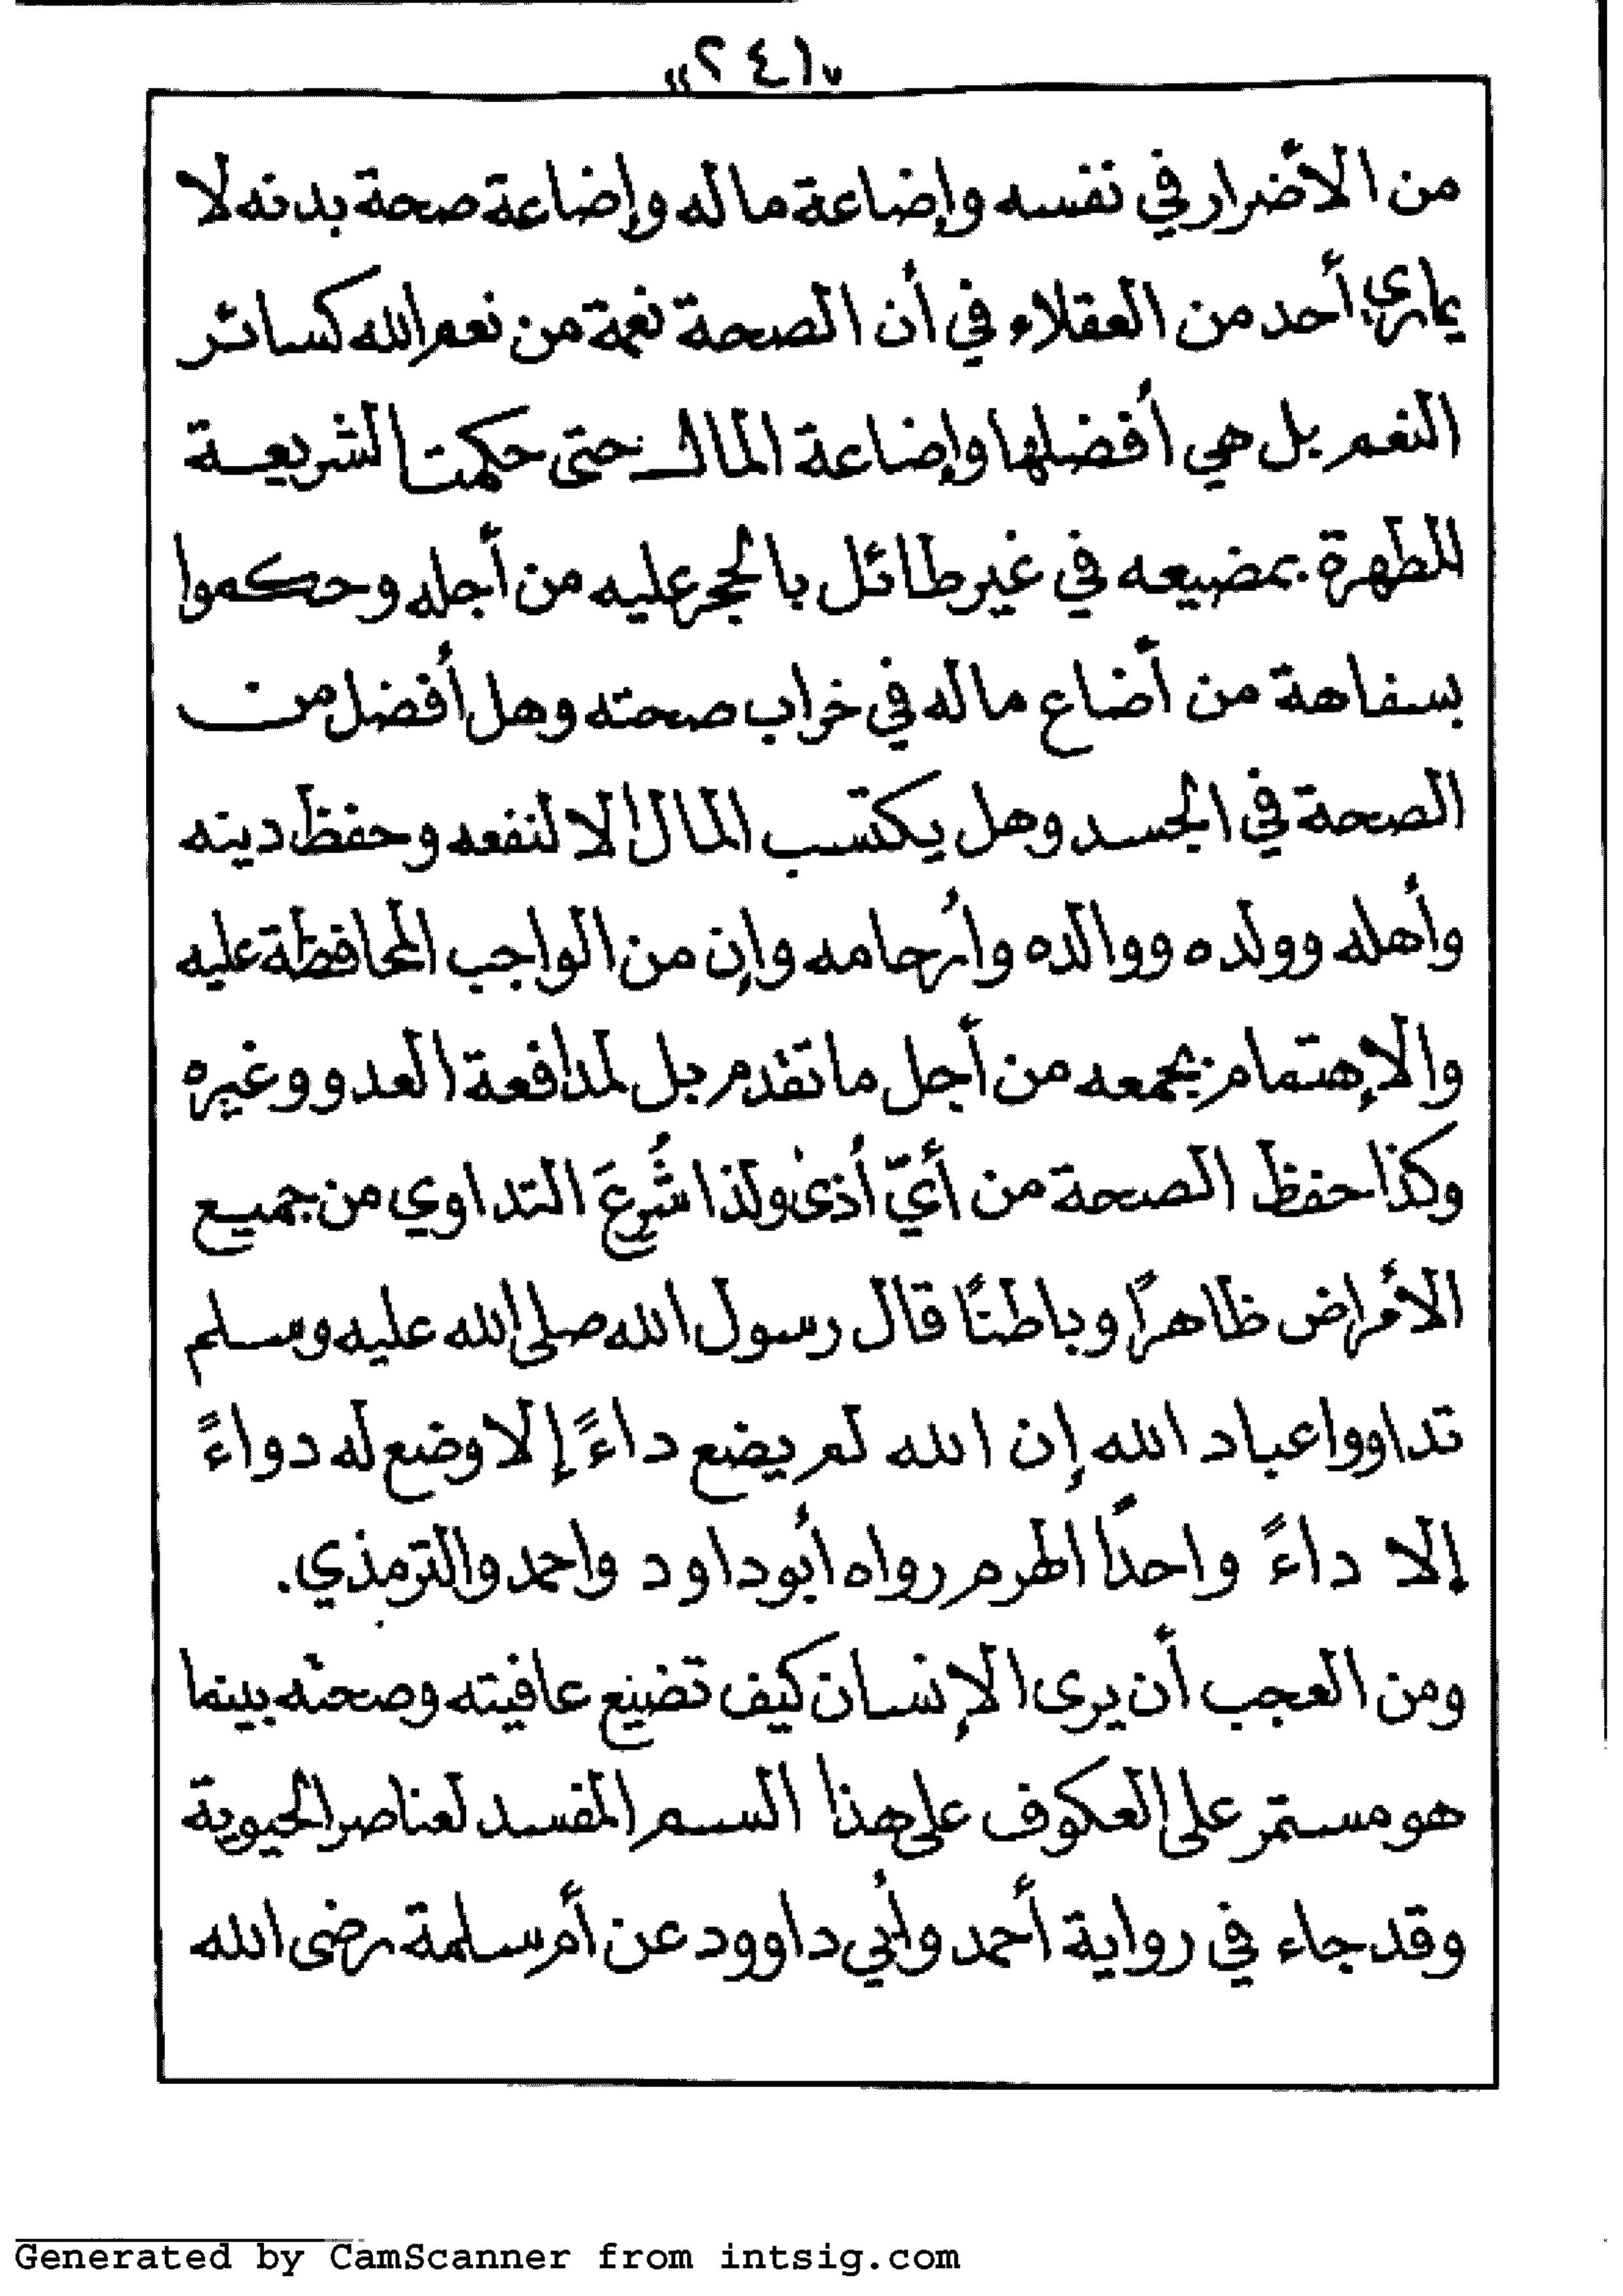 "٢٤١"
من الأضرار في نفسه وإضاعة ماله وإضاعة صحة بدنه لا
يماري أحد من العقلاء في أن الصحة نعمة من نعم الله كسائر
النعم بل هي أفضلها وإضاعة المال حتى حكمت الشريعة
للطهرة بمضيعه في غير طائل بالحجر عليه من أجله وحكموا
بسفاهة من أضاع ماله في خراب صحته وهل أفضل من
الصحة في الجسد وهل يكتسب المال إلا لنفعه وحفظ دينه
وأهله وولده ووالده وأرحامه وإن من الواجب المحافظة عليه
والإهتمام بجمعه من أجل ما تقدم بل لمدافعة العدو وغيره
وكذا حفظ الصحة من أيّ أذى ولذا شُرِعَ التداوي من جميع
الأمراض ظاهرًا وباطنًا قال رسول الله صلى الله عليه وسلم
تداووا عباد الله إن الله لم يضع داءً إلا وضع له دواءً
إلا داءً واحدًا الهرم رواه أبوداود واحمد والترمذي.
ومن العجب أن يرى الإنسان كيف تضيع عافيته وصحته بينما
هو مستمر على العكوف على هذا السم المفسد لعناصر الحيوية
وقد جاء في رواية أحمد وأبي داوود عن أم سلمة رضى الله
Generated by CamScanner from intsig.com